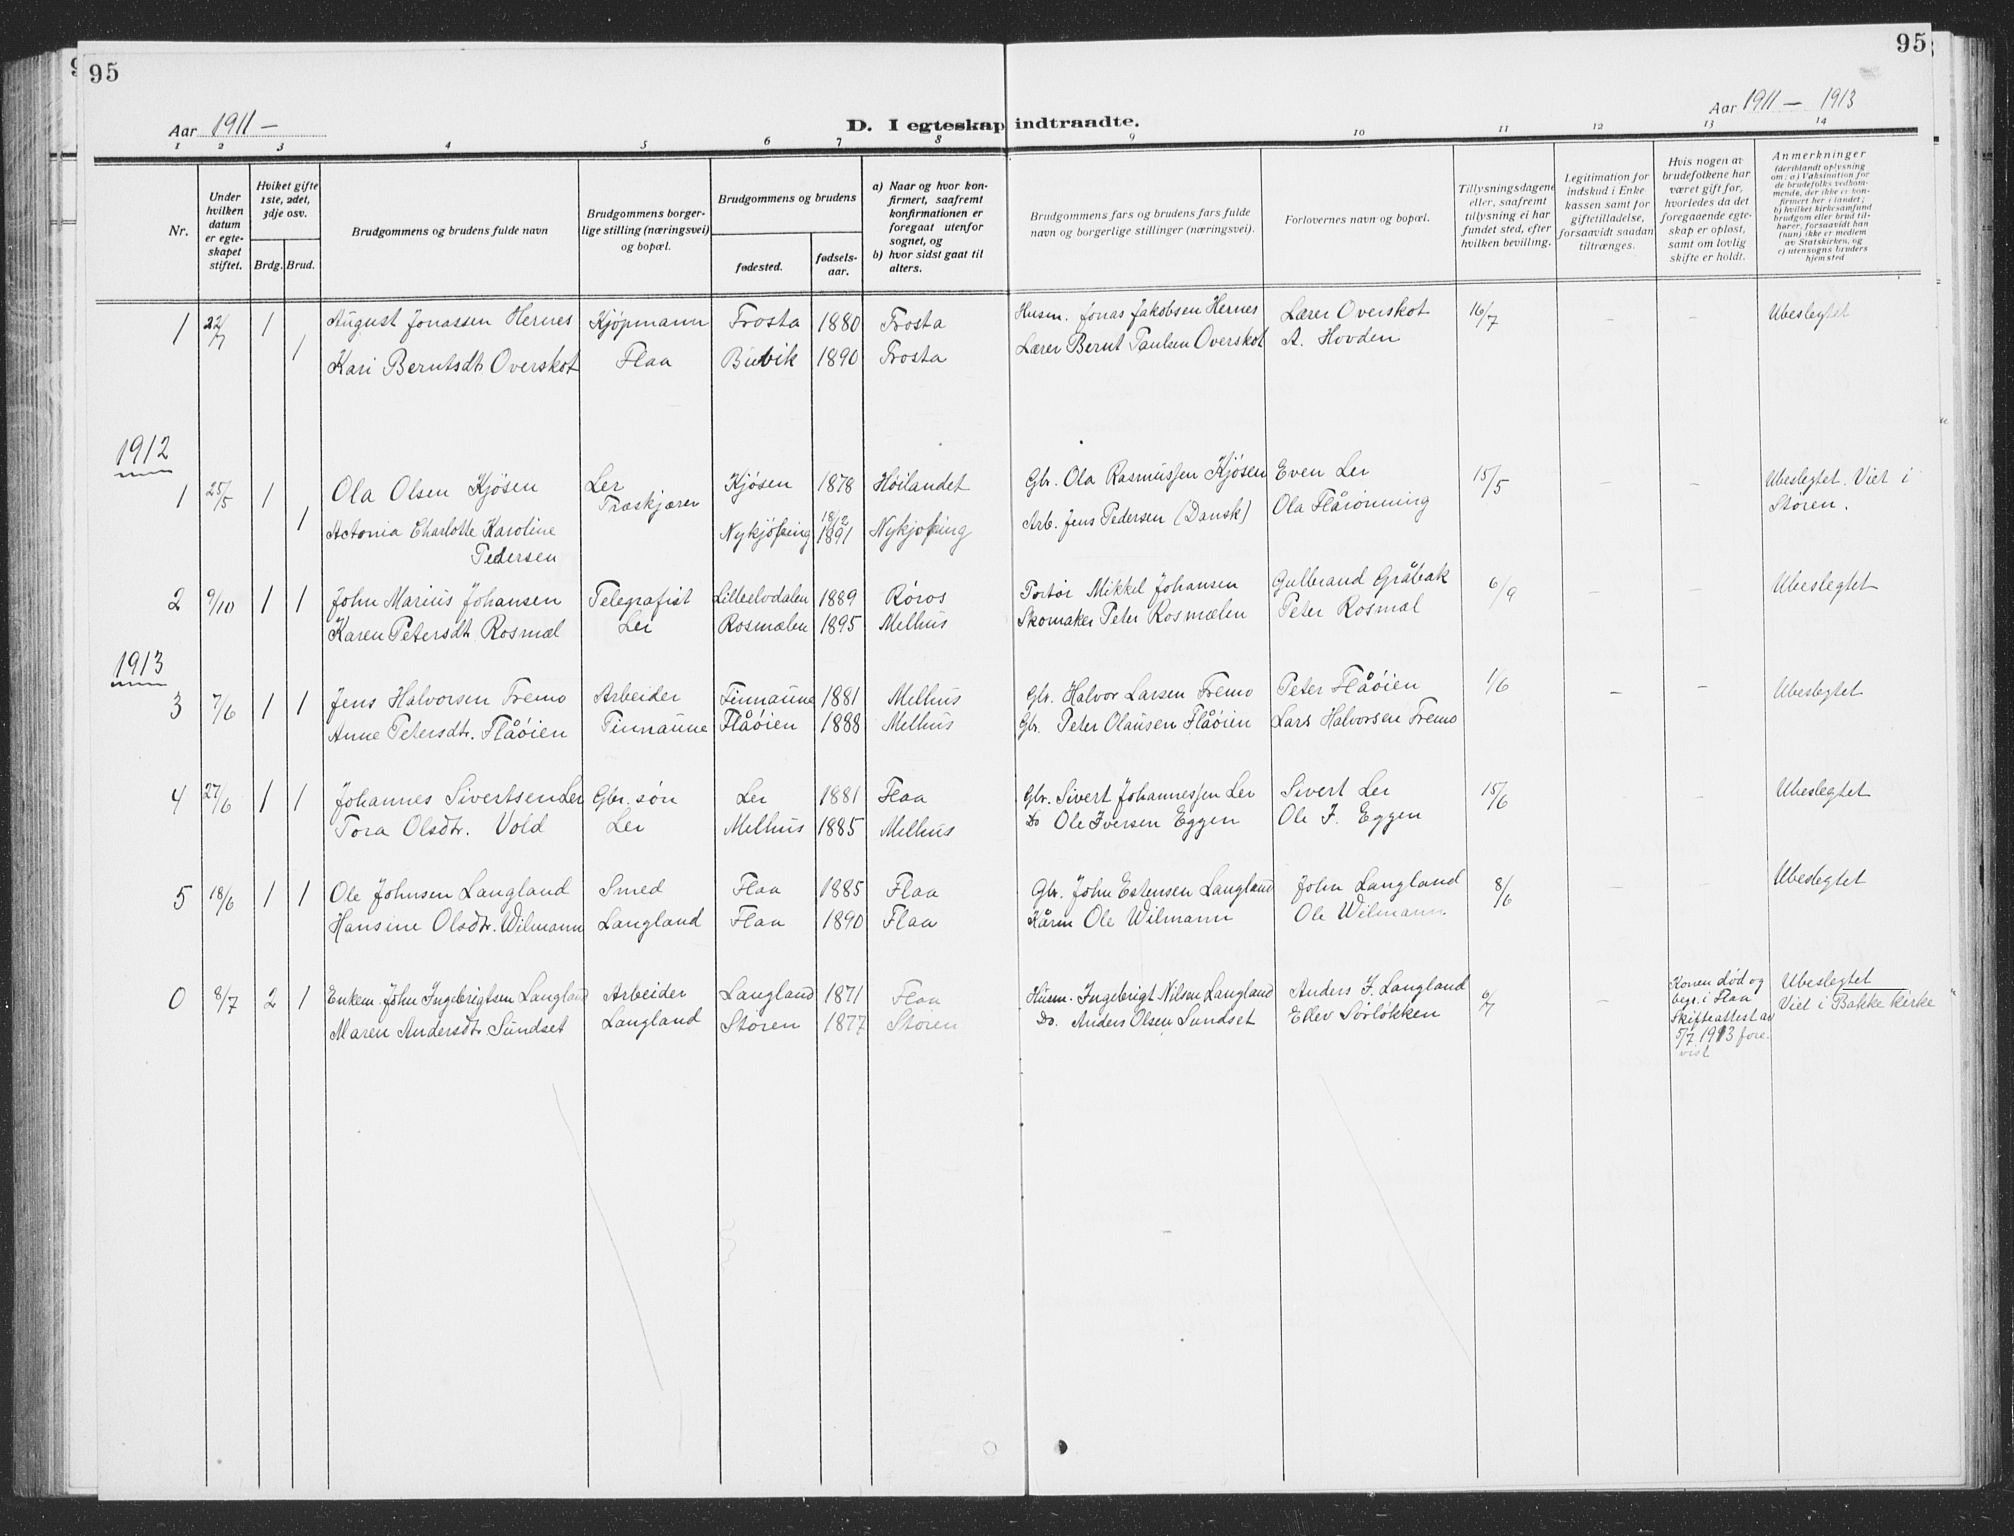 95
95
Aar 1911 –
D. I egteskap indtraadte.
Aar 1911 – 1913
1 2 3 4 5 6 7 8 9 10 11 12 13 14
Nr.
Under hvilken datum er egte-skapet stiftet.
Hviket gifte 1ste, 2det, 3dje osv.
Brdg. Brud.
Brudgommens og brudens fulde navn
Brudgommens borger-lige stilling (næringsvei) og bopæl.
Brudgommens og brudens
fødested.
fødsels-aar.
a) Naar og hvor kon-firmert, saafremt konfirmationen er foregaat utenfor sognet, og
b) hvor sidst gaat til alters.
Brudgommens fars og brudens fars fulde navn og borgerlige stillinger (næringsvei).
Forlovernes navn og bopæl.
Tillysningsdagene eller, saafremt tillysning ei har fundet sted, efter hvilken bevilling.
Legitimation for indskud i Enke kassen samt for giftetilladelse, forsaavidt saadan tiltrænges.
Hvis nogen av brudefolkene har været gift før, hvorledes da det foregaaende egte-skap er opløst, samt om lovlig skifte er holdt.
Anmerkninger
(deriblandt oplysning om: a) Vaksination for de brudefolks vedkom-mende, der ikke er kon-firmert her i landet; b) hvilket kirkesamfund brudgom eller brud til-hører, forsaavidt han (hun) ikke er medlem av Statskirken, og c) utensogns bruders hjemsted
1 22/7 1 August Jonassen Hernes Kjøpmann Frosta 1880 Frosta Husm. Jonas Jakobsen Hernes Lærer Overskot 16/7 – – Ubeslegtet
1 Kari Berntsdtr Overskot Flaa Buvik 1890 Frosta Lærer Bernt Paulsen Overskot A. Hovden
1912
1 25/5 1 Ola Olsen Kjösen Ler Kjøsen 1878 Høilandet Gbr. Ola Rasmussen Kjøsen Even Ler 15/5 – – Ubeslegtet. Viet i
Træskjærer Støren.
1 Actonia Charlotte Karoline Nykjøbing 18/2 1891 Nykjøbing Arb. Jens Pedersen (Dansk) Ola Flårönning
Pedersen
2 9/10 1 1 John Marius Johansen Telegrafist Lilleelvdalen 1889 Røros Portør Mikkel Johansen Gulbrand Gråbak 6/9 – – Ubeslegtet
Karen Petersdtr Rosmæl Ler Rosmælen 1895 Melhus Skomaker Peter Rosmælen Peter Rosmæl
1913
3 7/6 1 1 Jens Halvorsen Fremo Arbeider Finnaune 1881 Melhus Gbr. Halvor Larsen Fremo Peter Flåöien 1/6 – – Ubeslegtet
Anne Petersdtr. Flåöien Finnaune Flåöien 1888 Melhus Gbr. Peter Olausen Flåöien Lars Halvorsen Fremo
4 27/6 1 1 Johannes Sivertsen Ler Gbr. søn Ler 1881 Flaa Gbr. Sivert Johannessen Ler Sivert Ler 15/6 – Ubeslegtet
Tora Olsdtr. Vold Ler Melhus 1885 Melhus Do Ole Iversen Eggen Ole I. Eggen
5 18/6 1 1 Ole Johnsen Langland Smed Flaa 1885 Flaa Gbr. John Estensen Langland John Langland 8/6 – – Ubeslegtet
Hansine Olsdtr. Wilmann Langland Flaa 1890 Flaa Ole Wilmann Ole Wilmann
0 8/7 2 1 Enkem. John Ingebrigtsen Langland Arbeider Langland 1871 Flaa Husm. Ingebrigt Nilsen Langland Anders I. Langland 6/7 – Konen død og Ubeslegtet
begr. i Flaa Viet i Bakke kirke
Maren Andersdtr Sundset Langland Støren 1877 Støren Do. Anders Olsen Sundset Ellev Sørløkken Skifteattest av
5/7 1913 fore-
vist